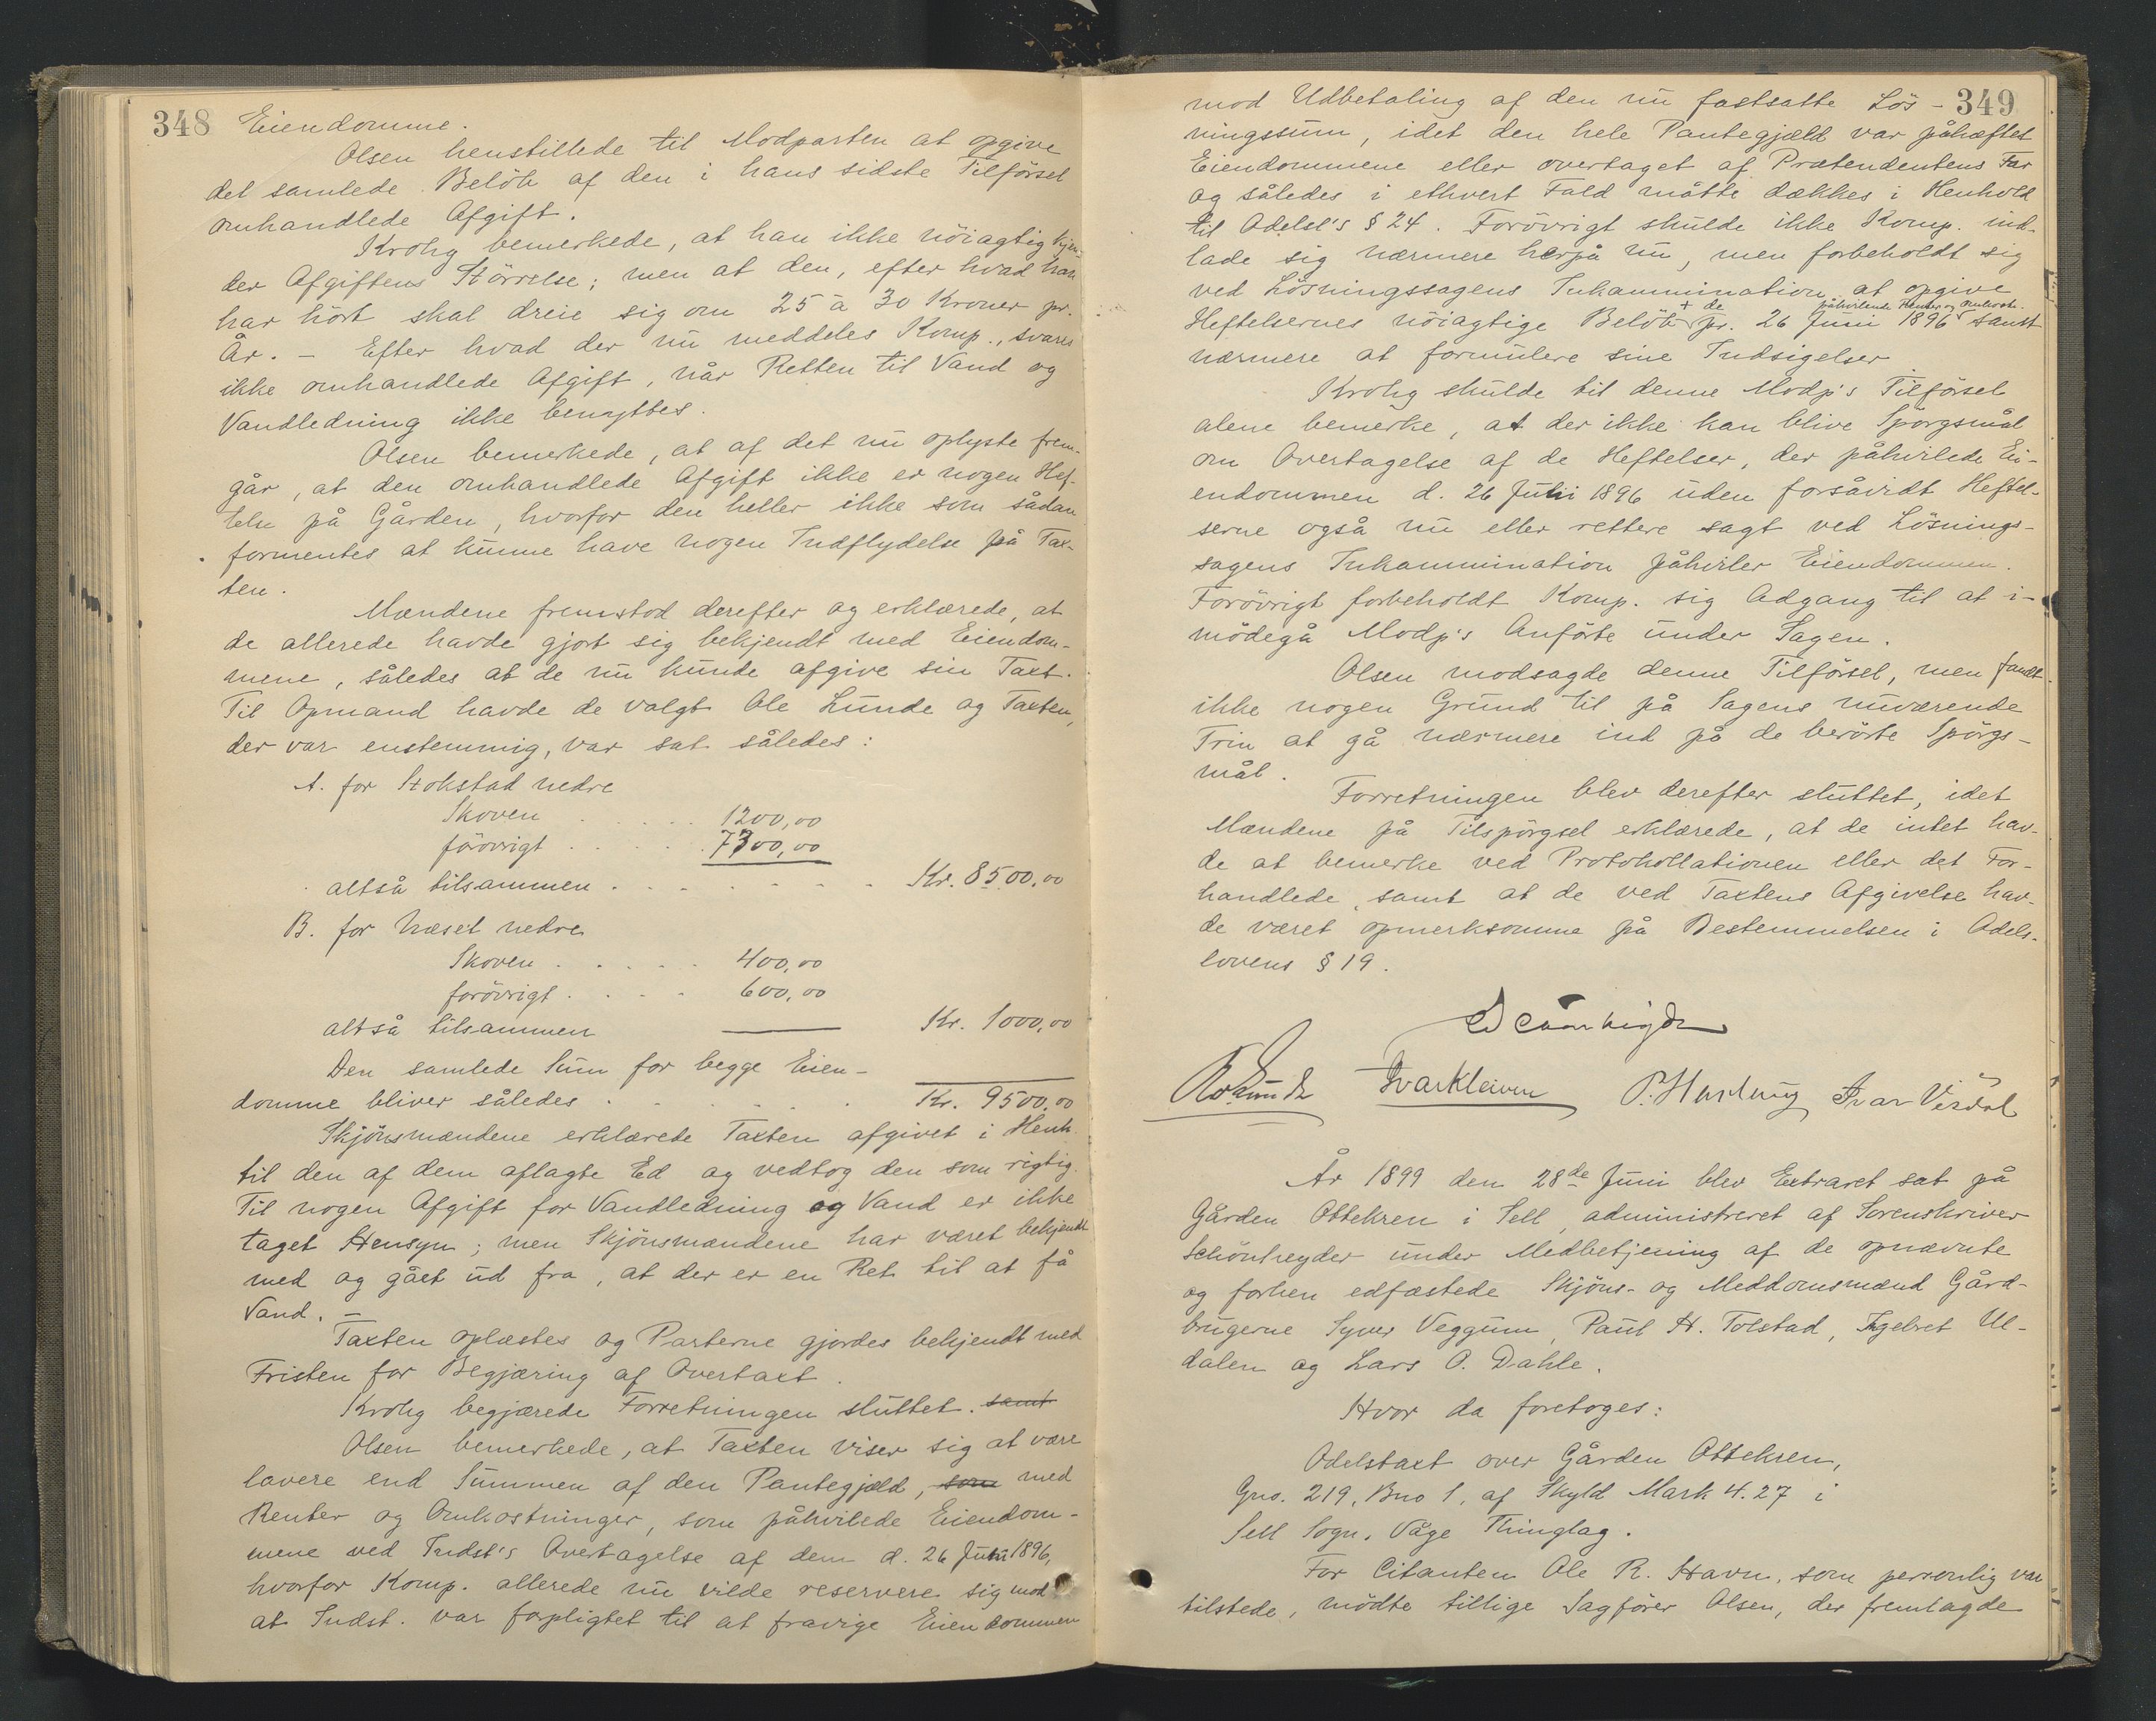 348
Eiendomme.
Olsen henstillede til Modparten at opgive
det samlede Belöb af den i hans sidste Tilförsel
omhandlede Afgift.
Krohg bemerkede, at han ikke nöiagtig kjen-
der Afgiftens Störrelse; men at den, efter hvad han
har hört skal dreie sig om 25 à 30 Kroner pr.
År. – Efter hvad der nu meddeles Komp., svares
ikke omhandlede Afgift, når Retten til Vand og
Vandledning ikke benyttes.
Olsen bemerkede, at af det nu oplyste frem-
går, at den omhandlede Afgift ikke er nogen Hef-
telse på Gården, hvorfor den heller ikke som sådan
formentes at kunne have nogen Indflydelse på Tax-
ten.
Mændene fremstod derefter og erklærede, at
de allerede havde gjort sig bekjendt med Eiendom-
mene, således at de nu kunde afgive sin Taxt.
Til Opmand havde de valgt Ole Lunde og Taxten,
der var enstemmig, var sat således:
A. for Stokstad nedre
Skoven . . . . . 1200,00
forövrigt . . . . . 7300,00
altså tilsammen . . . . . . . . Kr. 8500,00
B. for Næset nedre
Skoven . . . . . 400,00
forövrigt . . . . 600,00
altså tilsammen Kr. 1000,00
Den samlede Sum for begge Eien-
domme bliver således . . . . . . Kr. 9500,00
Skjönsmændene erklærede Taxten afgivet i Henh.
til den af dem aflagte Ed og vedtog den som rigtig.
Til nogen Afgift for Vandledning og Vand er ikke
taget Hensyn; men Skjönsmændene har været bekjendt
med og gået ud fra, at der er en Ret til at få
Vand. –
Taxten oplæstes og Parterne gjordes bekjendt med
Fristen for Begjæring af Overtaxt.
Krohg begjærede Forretningen sluttet. samt
Olsen bemerkede, at Taxten viser sig at være
lavere end Summen af den Pantegjæld, som med
Renter og Omkostninger, som påhvilede Eiendom-
mene ved Indst's Overtagelse af dem d. 26 Juni 1896,
hvorfor Komp. allerede nu vilde reservere sig mod
at Indst. var forpligtet til at fravige Eiendommen
349
mod Udbetaling af den nu fastsatte Lös-
ningssum, idet den hele Pantegjæld var påhæftet
Eiendommene eller overtaget af Prætendentens Far
og således i ethvert Fald måtte dækkes i Henhold
til Odelsl's § 24. Forövrigt skulde ikke Komp. ind-
lade sig nærmere herpå nu, men forbeholdt sig
ved Lösningssagens Inkammination at opgive
+ de påhvilende Renter og Omkostn.
Heftelsernes nöiagtige Belöb pr. 26 Juni 1896 samt
nærmere at formulere sine Indsigelser
Krohg skulde til denne Modp's Tilförsel
alene bemerke, at der ikke kan blive Spörgsmål
om Overtagelse af de Heftelser, der påhvilede Ei-
endommen d. 26 Juni 1896 uden forsåvidt Heftel-
serne også nu eller rettere sagt ved Lösnings-
sagens Inkammination påhviler Eiendommen.
Forövrigt forbeholdt Komp. sig Adgang til at i-
mödegå Modp's Anförte under Sagen.
Olsen modsagde denne Tilförsel, men fandt
ikke nogen Grund til på Sagens nuværende
Trin at gå nærmere ind på de berörte Spörgs-
mål.
Forretningen blev derefter sluttet, idet
Mændene på Tilspörgsel erklærede, at de intet hav-
de at bemerke ved Protokollationen eller det For-
handlede, samt at de ved Taxtens Afgivelse hav-
de været opmerksomme på Bestemmelsen i Odels-
lovens § 19.
Ivar Kleiven P. Harlaug Ivar Virdal
År 1899 den 28de Juni blev Extraret sat på
Gården Ottekren i Sell, administreret af Sorenskriver
Schönheyder under Medbetjening af de opnævnte
og forhen edfæstede Skjöns- og Meddomsmænd Gård-
brugerne Syver Veggum, Paul H. Tolstad, Ingebret Ul-
dalen og Lars O. Dahle.
Hvor da foretoges:
Odelstaxt over Gården Ottekren,
Gno. 219, Bno 1, af Skyld Mark 4.27 i
Sell Sogn, Våge Thinglag.
For Citanten Ole R. Havn, som personlig var
tilstede, mödte tillige Sagförer Olsen, der fremlagde